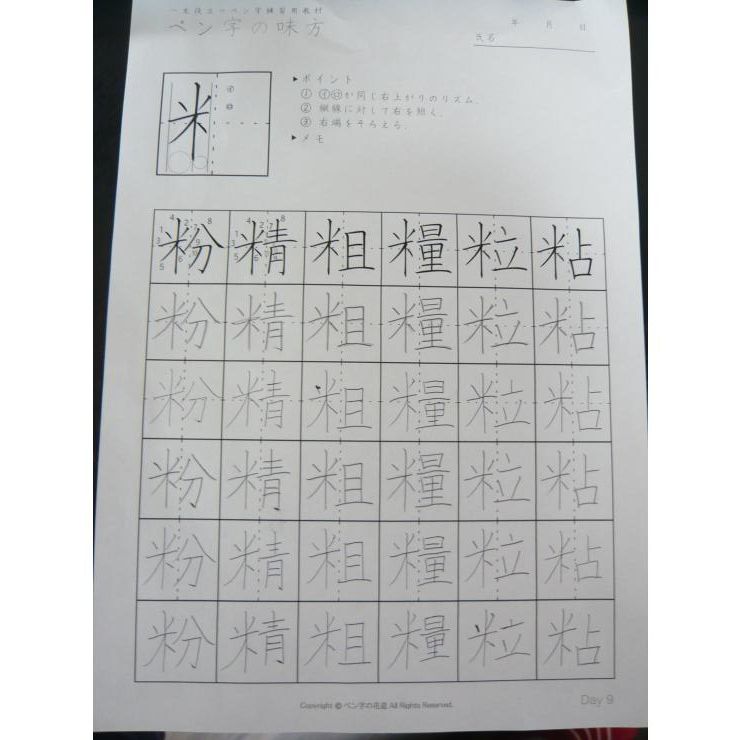 ペン字練習用教材
ペン字の味方
年 月 日
氏名
米
㋑
㋺
▶ポイント
① ㋑㋺が同じ右上がりのリズム.
② 縦線に対して右を短く.
③ 右端をそろえる.
▶メモ
粉 精 粗 糧 粒 粘
粉 精 粗 糧 粒 粘
粉 精 粗 糧 粒 粘
粉 精 粗 糧 粒 粘
粉 精 粗 糧 粒 粘
粉 精 粗 糧 粒 粘
Copyright © ペン字の花道 All Rights Reserved.
Day 9